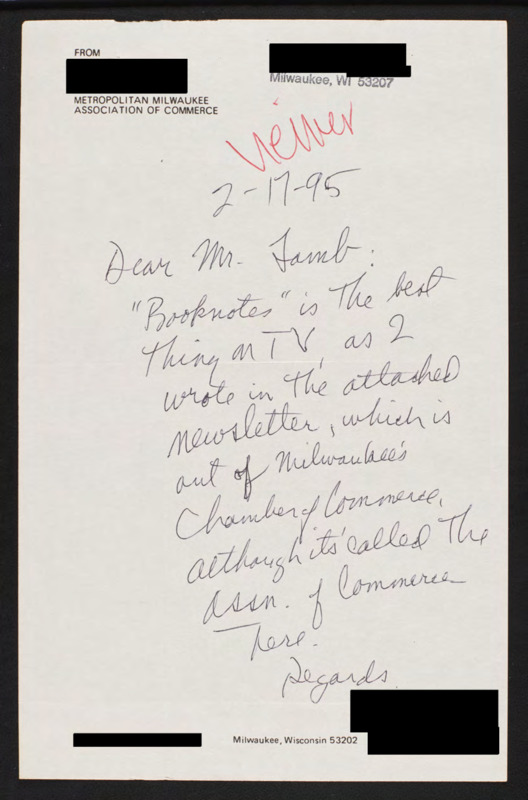 FROM
Milwaukee, WI 53207
METROPOLITAN MILWAUKEE
ASSOCIATION OF COMMERCE
Viewer
2-17-95
Dear Mr. Lamb:
"Booknotes" is the best
thing on TV, as I
wrote in the attached
newsletter, which is
out of Milwaukee's
Chamber of Commerce,
although it's called the
Assn. of Commerce
here.
Regards
Milwaukee, Wisconsin 53202